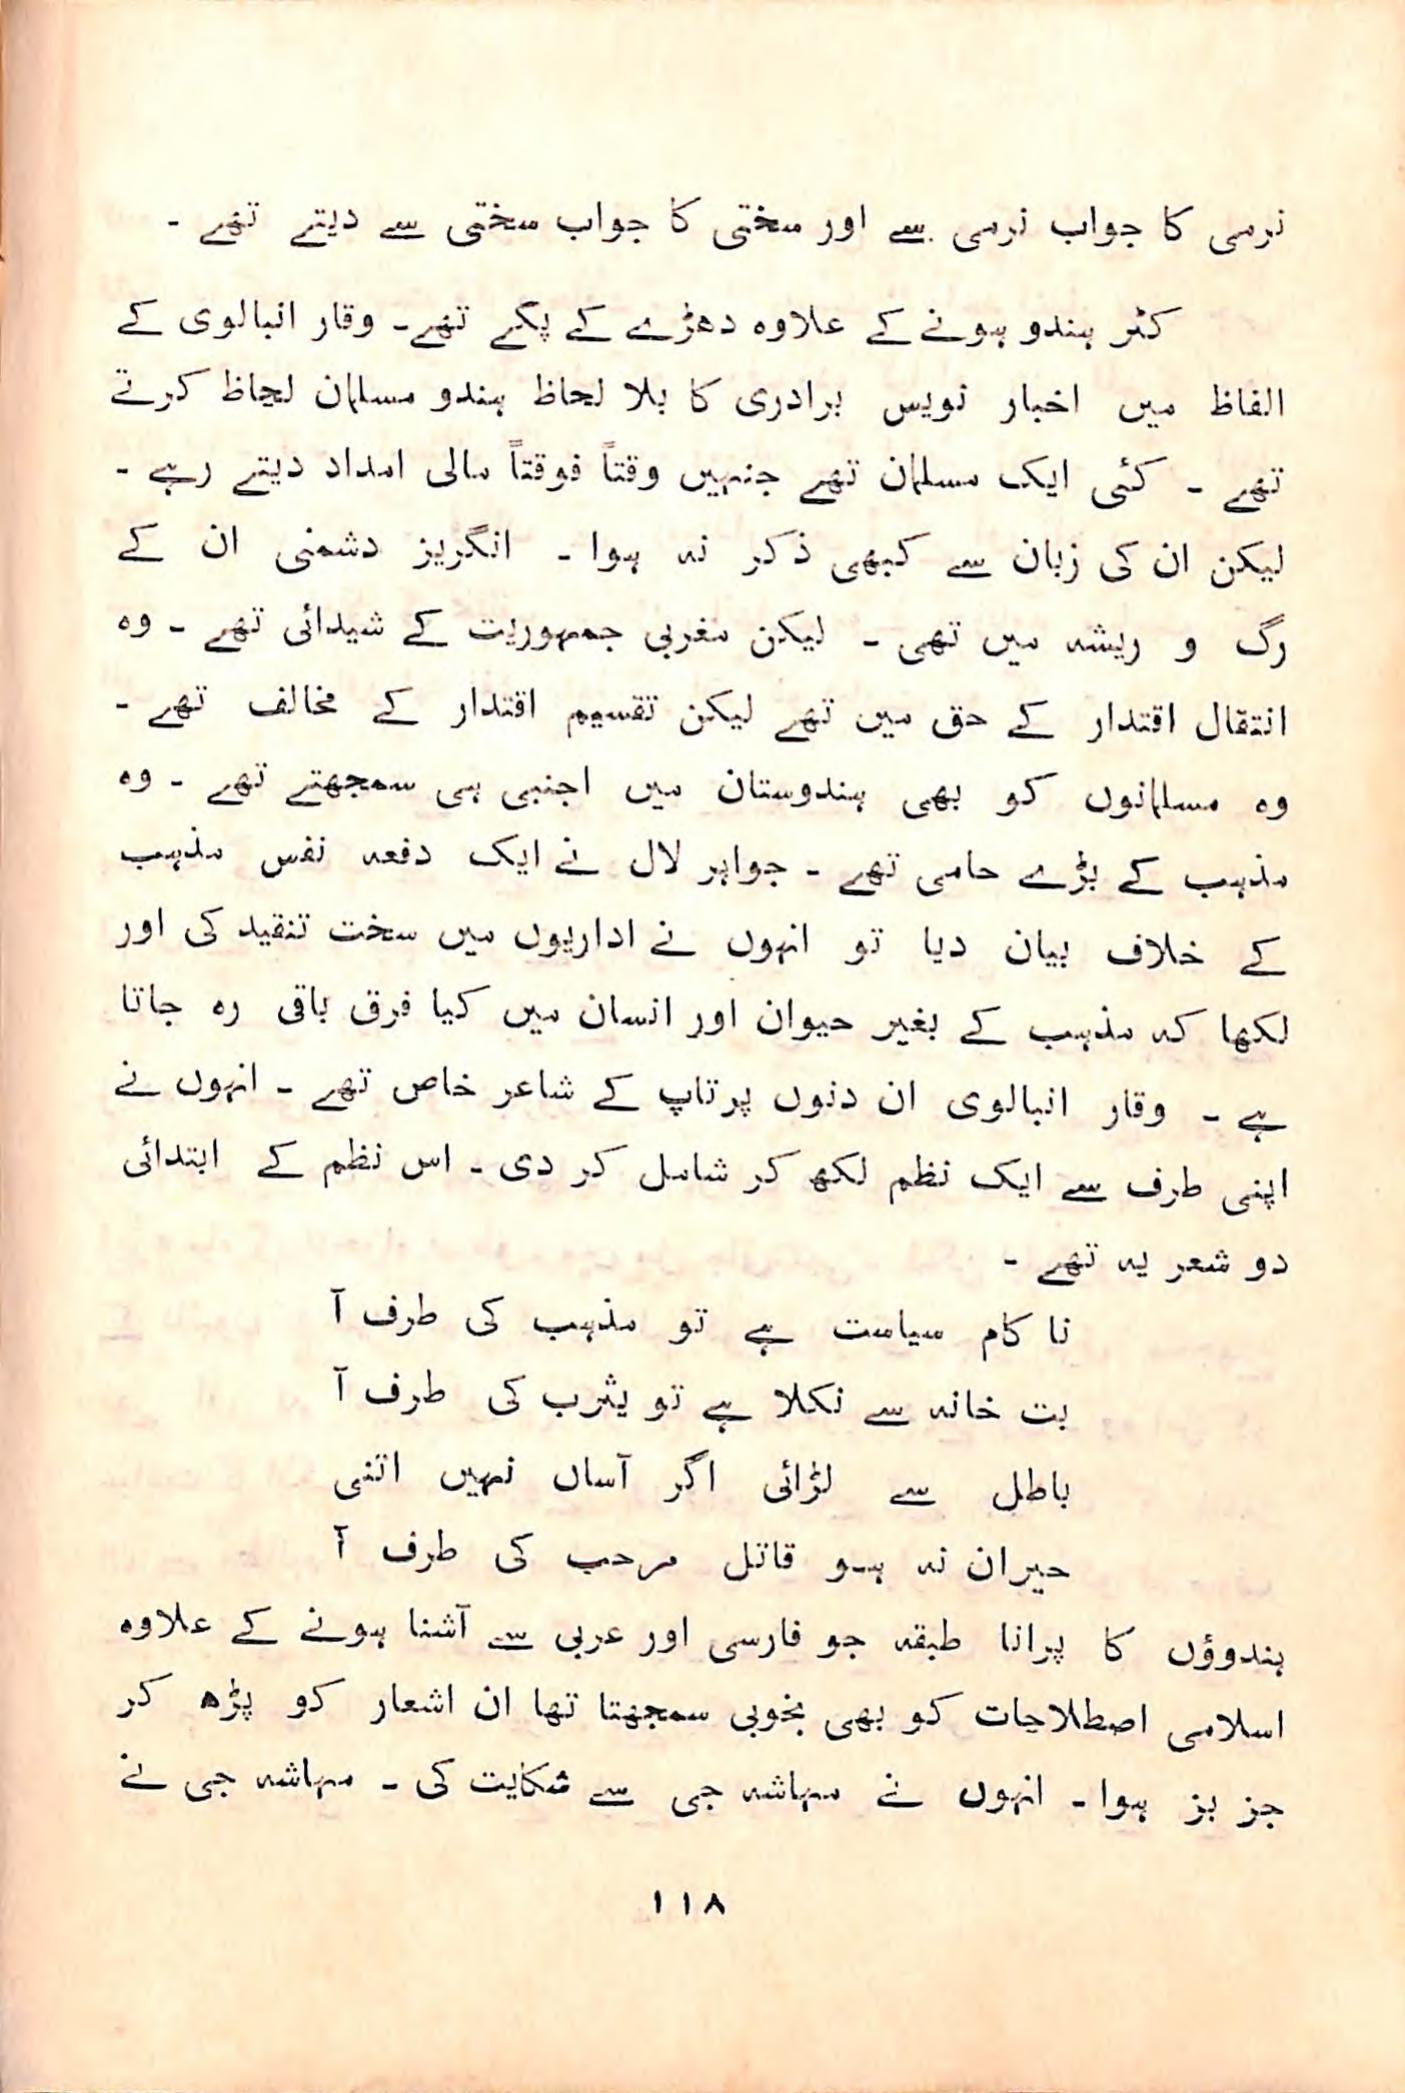 نرمی کا جواب نرمی سے اور سختی کا جواب سختی سے دیتے تھے ۔
کٹر ہندو ہونے کے علاوہ دھڑے کے پکے تھے۔ وقار انبالوی کے
الفاظ میں اخبار نویس برادری کا بلا لحاظ ہندو مسلمان لحاظ کرتے
تھے ۔ کئی ایک مسلمان تھے جنہیں وقتاً فوقتاً مالی امداد دیتے رہے ۔
لیکن ان کی زبان سے کبھی ذکر نہ ہوا ۔ انگریز دشمنی ان کے
رگ و ریشہ میں تھی ۔ لیکن مغربی جمہوریت کے شیدائی تھے ۔ وہ
انتقال اقتدار کے حق میں تھے لیکن تقسیم اقتدار کے مخالف تھے ۔
وہ مسلمانوں کو بھی ہندوستان میں اجنبی ہی سمجھتے تھے ۔ وہ
مذہب کے بڑے حامی تھے ۔ جواہر لال نے ایک دفعہ نفس مذہب
کے خلاف بیان دیا تو انہوں نے اداریوں میں سخت تنقید کی اور
لکھا کہ مذہب کے بغیر حیوان اور انسان میں کیا فرق باقی رہ جاتا
ہے ۔ وقار انبالوی ان دنوں پرتاپ کے شاعر خاص تھے ۔ انہوں نے
اپنی طرف سے ایک نظم لکھ کر شامل کر دی ۔ اس نظم کے ابتدائی
دو شعر یہ تھے ۔
نا کام سیاست ہے تو مذہب کی طرف آ
بت خانہ سے نکلا ہے تو یثرب کی طرف آ
باطل سے لڑائی اگر آساں نہیں اتنی
حیران نہ ہو قاتل مرحب کی طرف آ
ہندوؤں کا پرانا طبقہ جو فارسی اور عربی سے آشنا ہونے کے علاوہ
اسلامی اصطلاحات کو بھی بخوبی سمجھتا تھا ان اشعار کو پڑھ کر
جز بز ہوا ۔ انہوں نے مہاشہ جی سے شکایت کی ۔ مہاشہ جی نے
۱۱۸